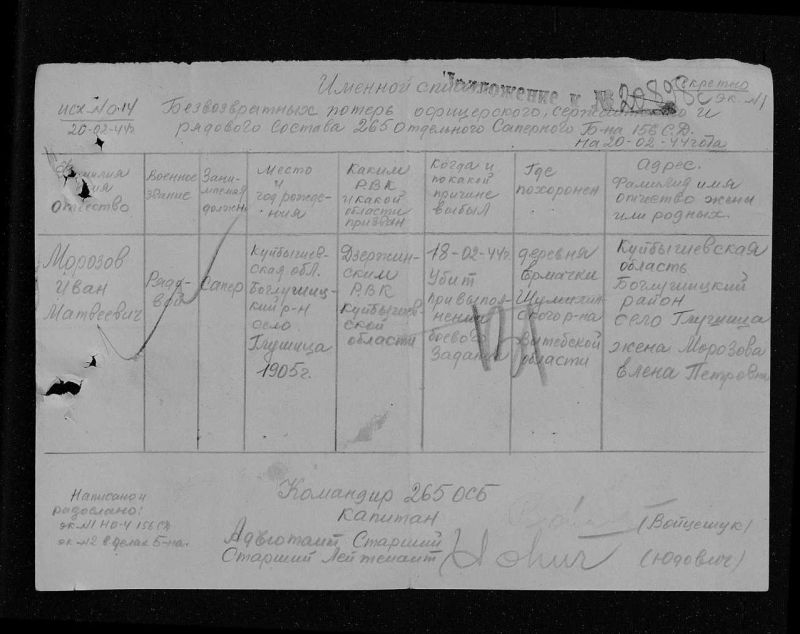 Именной список
Приложение к № 20898с
Секретно
исх. No. 14
Безвозвратных потерь офицерского, и
эк. №1
20-02-44г.
рядового состава 265 Отдельного Саперного Б-на 156 С.Д.
на 20-02-44 года
Фамилия
имя
отчество
Военное
звание
Зани-
маемая
должн.
Место
и
год рожде-
ния
Каким
РВК
и какой
области
призван
Когда и
по какой
причине
выбыл
Где
похоронен
Адрес.
Фамилия имя
отчество жены
или родных.
Морозов
Иван
Матвеевич
Рядо-
вой
Сапер
Куйбышев-
ская обл.
Боглушиц-
кий р-н
село
Глушица
1905г.
Дзержин-
ским
РВК
Куйбышев-
ской
области
18-02-44г.
Убит
при выпол-
нении
боевого
задания
деревня
Ермачки
Шумилин-
ского р-на
Витебской
области
Куйбышевская
область
Боглушицкий
район
село Глушица
жена Морозова
Елена Петровна
Написано и
разослано:
эк. №1 НО-4 156 СД
эк. №2 в делах Б-на.
Командир 265 ОСБ
капитан
(Войцещук)
Адъютант Старший
Старший Лейтенант
(Юдович)